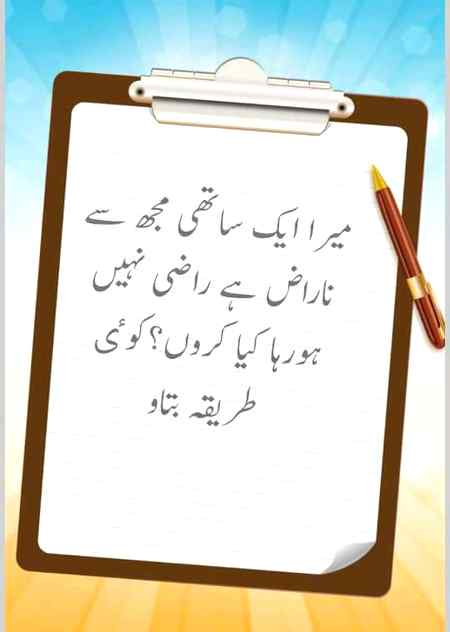 میرا ایک ساتھی مجھ سے
ناراض ہے راضی نہیں
ہورہا کیا کروں؟کوئی
طریقہ بتاو